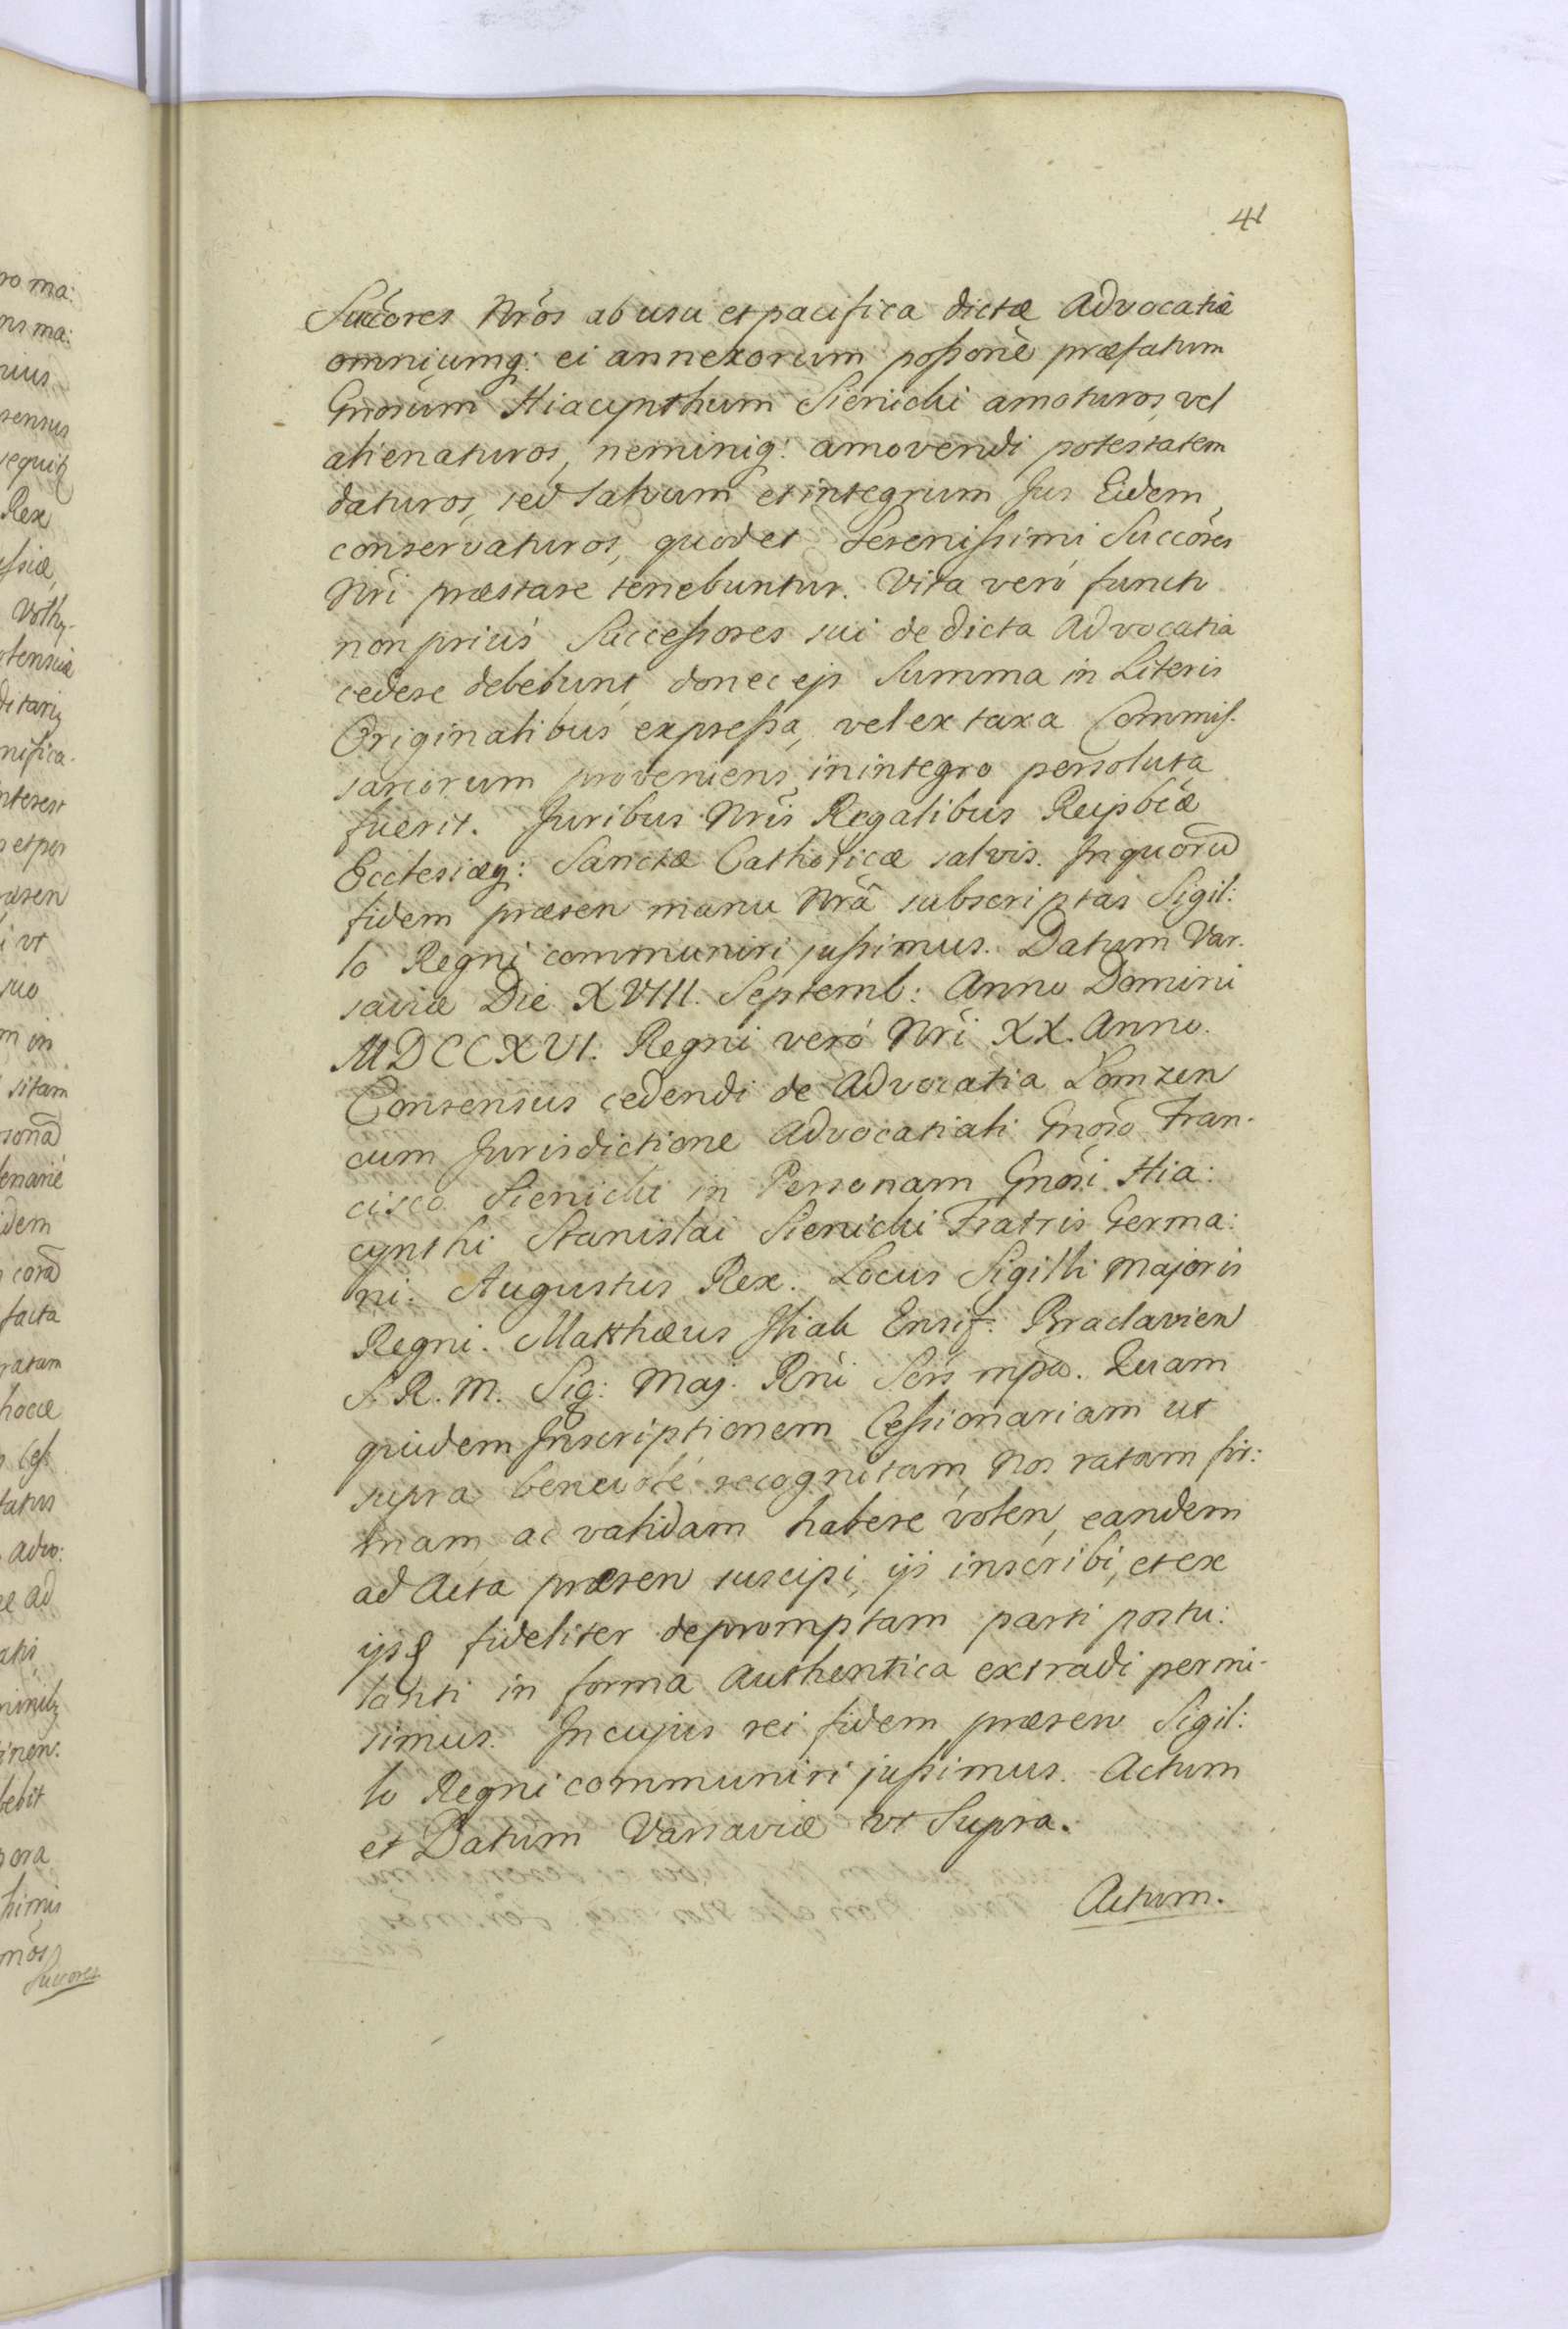 41
Succores Nros ab usu et pacifica dictæ Advocatiæ
omniumq: ei annexorum possone præfatum
Gnosum Hiacynthum Sienicki amoturos, vel
alienaturos, neminiq: amovendi potestatem
daturos, sed salvum et integrum Jus Eidem
conservaturos, quod et Serenissimi Succores
Nri præstare tenebuntur. Vita verò functo
non prius Successores sui de dicta Advocatia
cedere debebunt, donec ejs Summa in Literis
Originalibus expressa, vel ex taxa Commis-
sariorum proveniens, in integro persoluta
fuerit. Juribus Nris Regalibus Reipbcæ
Ecclesiæq: Sanctæ Catholicæ salvis. In quorũ
fidem præsen manu Nrâ subscriptas Sigil:
lo Regni communiri jussimus. Datum Var-
saviæ Die XVIII. Septemb: Anno Domini
MDCCXVI. Regni verò Nri XX. Anno.
Consensus cedendi de Advocatia Lomzen
cum Jurisdictione Advocatiali Gnoso Fran-
cisco Sienicki in Personam Gnosi Hia:
cynthi Stanislai Sienicki Fratris Germa:
ni. Augustus Rex. Locus Sigilli Majoris
Regni. Matthæus Ensif: Braclavien
S. R. M. Sig: Maj. Rni Scrs mpa. Quam
quidem Inscriptionem Cessionariam ut
supra recognitam, Nos ratam fir:
mam ac validam habere volen, eandem
ad Acta præsen suscipi, ijs inscribi, et ex
ijsq fideliter depromptam parti postu:
lanti in forma Authentica extradi permi-
simus. In cujus rei fidem præsen Sigil:
lo Regni communiri jussimus. Actum
et Datum Varsaviæ vt Supra.
Actum.
Succores